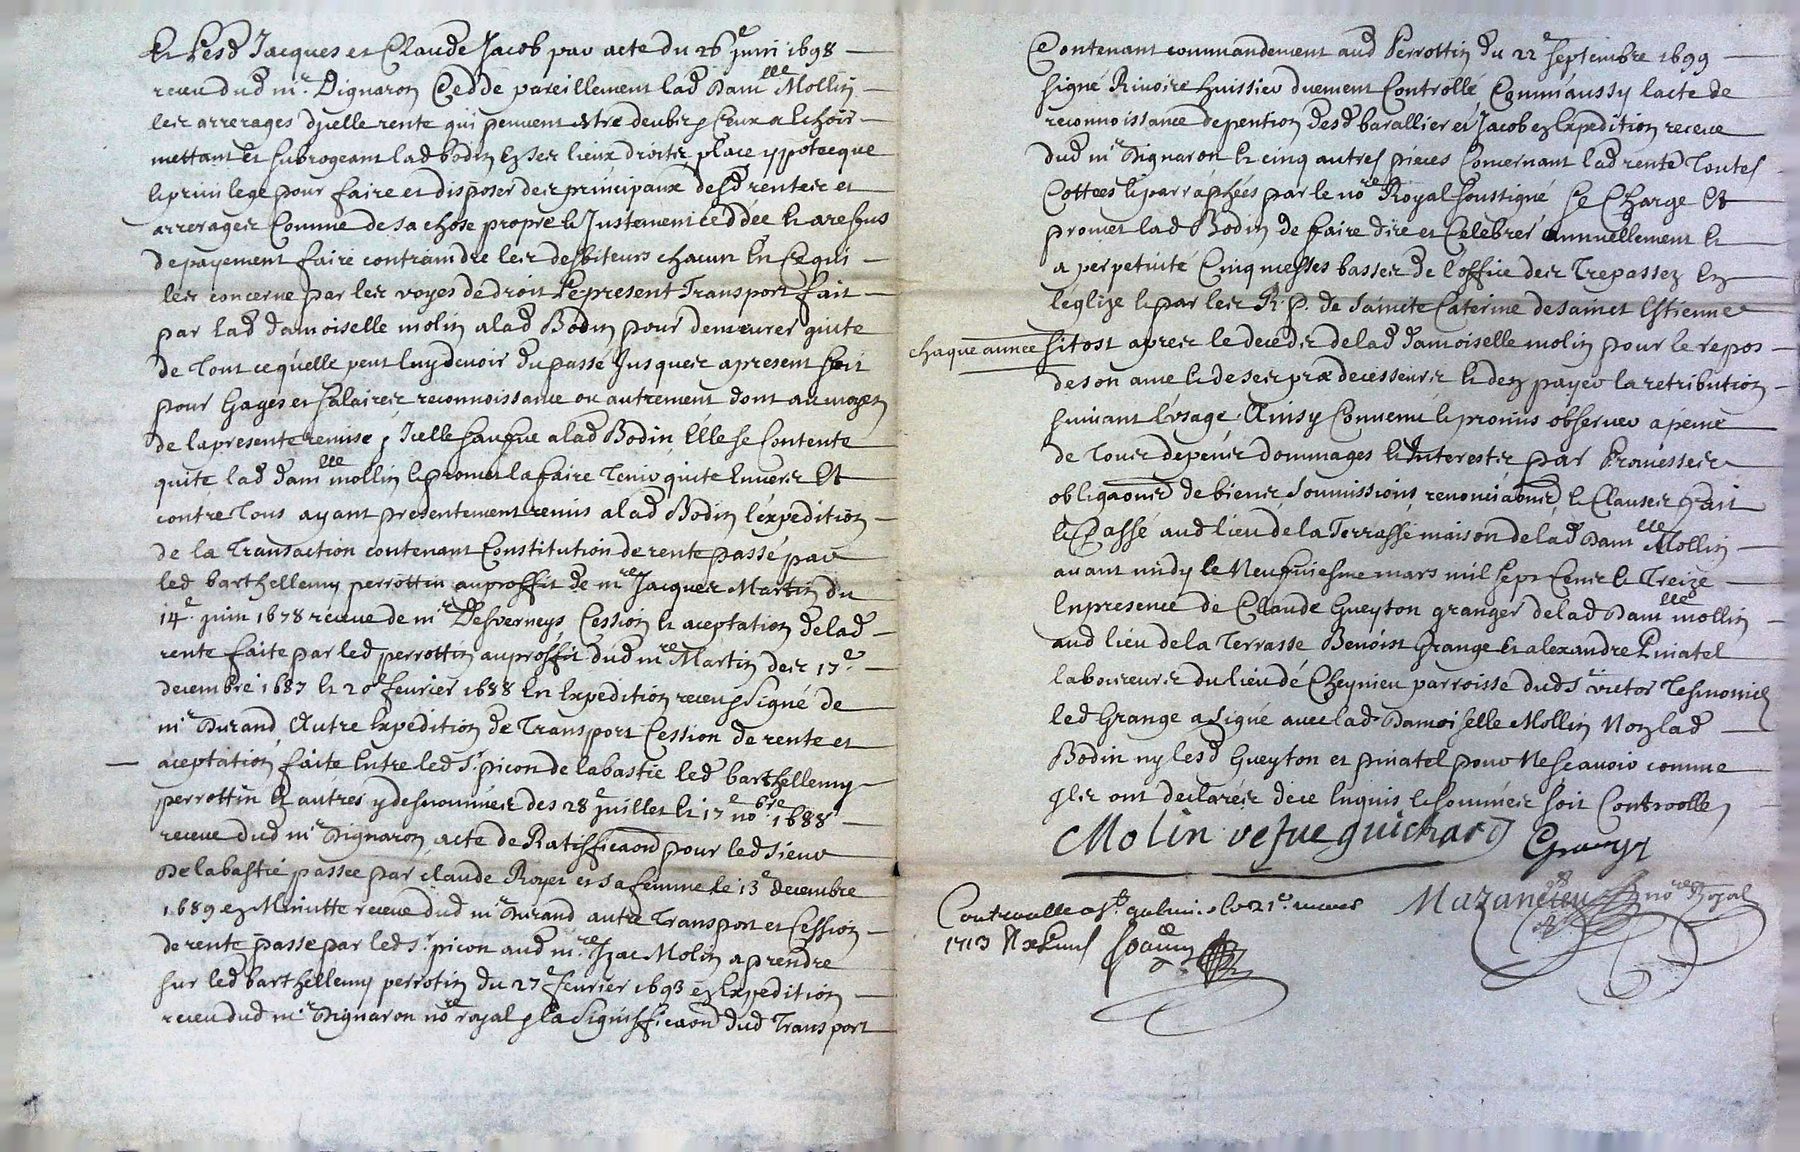 Et Lesd Jacques et Claude Jacob par acte du 26e juin 1698
receu dud mr Dignaron Cedde pareillement lad Damlle Mollin
les arrerages d'jcelle rente qui peuvent estre deubs & Ceux a Echoir
mettant et subrogeant lad bodin En ses lieux droits place ypotecque
& privilege pour faire et disposer des principaux desd rentes et
arrerages Comme de sa chose propre & Justement ceddée Et a refus
de payement faire contraindre les debiteurs chacun En ce qui
les concerne par les voyes de droit Le present Transport fait
par lad damoiselle molin a lad Bodin pour demeurer quite
de Tout ce qu'elle peut luy devoir du passé Jusques a present soit
pour Gages et salaires reconnoissance ou autrement dont au moyen
de la presente remise & Jcelle sauve a lad Bodin Elle se Contente
quite lad damlle mollin & promet la faire Tenir quite Envers Et
contre Tous ayant presentement remis a lad Bodin l'expedition
de la Transaction contenant Constitution de rente passé par
led barthellemy perrottin au proffit de mre Jacques Martin du
14e juin 1678 receue de mr Desverneys Cession & aceptation de lad
rente faite par led perrottin au proffit dud mre Martin des 17e
decembre 1687 & 20e fevrier 1688 En Expedition receu & signé de
mr Durand Autre Expedition de Transport Cession de rente et
aceptation faite Entre led sr picon de labastie led barthellemy
perrottin & autres y desnommés des 28e juillet & 17e nobre 1688
receue dud mr Dignaron acte de Ratifficaon pour led sieur
De labastie passée par claude Royer et sa femme le 13e decembre
1689 en Minutte receue dud mr Durand autre Transport et Cession
de rente passé par led sr picon aud mre Izac Molin a prendre
sur led barthellemy perrotin du 27e fevrier 1693 en Expedition
receu dud mr Dignaron nore royal & la Signifficaon dud Transport
Contenant commandement aud Perrottin du 22e septembre 1699
signé Rivoire huissier duement Controllé Comm'aussy l'acte de
reconnoissance de pention desd barallier et Jacob en Expedition receue
dud mr Dignaron & cinq autres pieces Concernant lad rente Toutes
Cottées & parraphées par le nore Royal soussigné se Charge Et
promet lad Bodin de faire dire et Celebrer annuellement &
a perpetuité Cinq messes basses de l'office des Trepassez En
l'eglize & par les R. p. de saincte Caterine de sainct Estienne
chaque année sitost apres le deceds de lad damoiselle molin pour le repos
de son ame & de ses prædecesseurs & d'en payer la retribution
suivant l'usage. Ainsy Convenu & promis observer a peine
de Tous depens dommages & Interests par Promesses
obligaons de biens soumissions renonciaons & Clauses Fait
& Passé aud lieu de la Terrasse maison de lad Damlle Mollin
avant midy le Neufviesme mars mil sept Cens & Treize
En presence de Claude Gueyton granger de lad Damlle mollin
aud lieu de la Terrasse Benoist Grange & alexandre Piniatel
laboureurs du lieu de Cheynieu parroisse dud st victor Tesmoins
led Grange a signé avec lad Damoiselle Mollin Non lad
Bodin ny lesd Gueyton et piniatel pour Ne scavoir comme
Ils ont declarés de ce Enquis & sommés soit Controollé
Molin vefue guichard Grange
Mazancieu nore Royal
Controollé a le 21e mars
1713